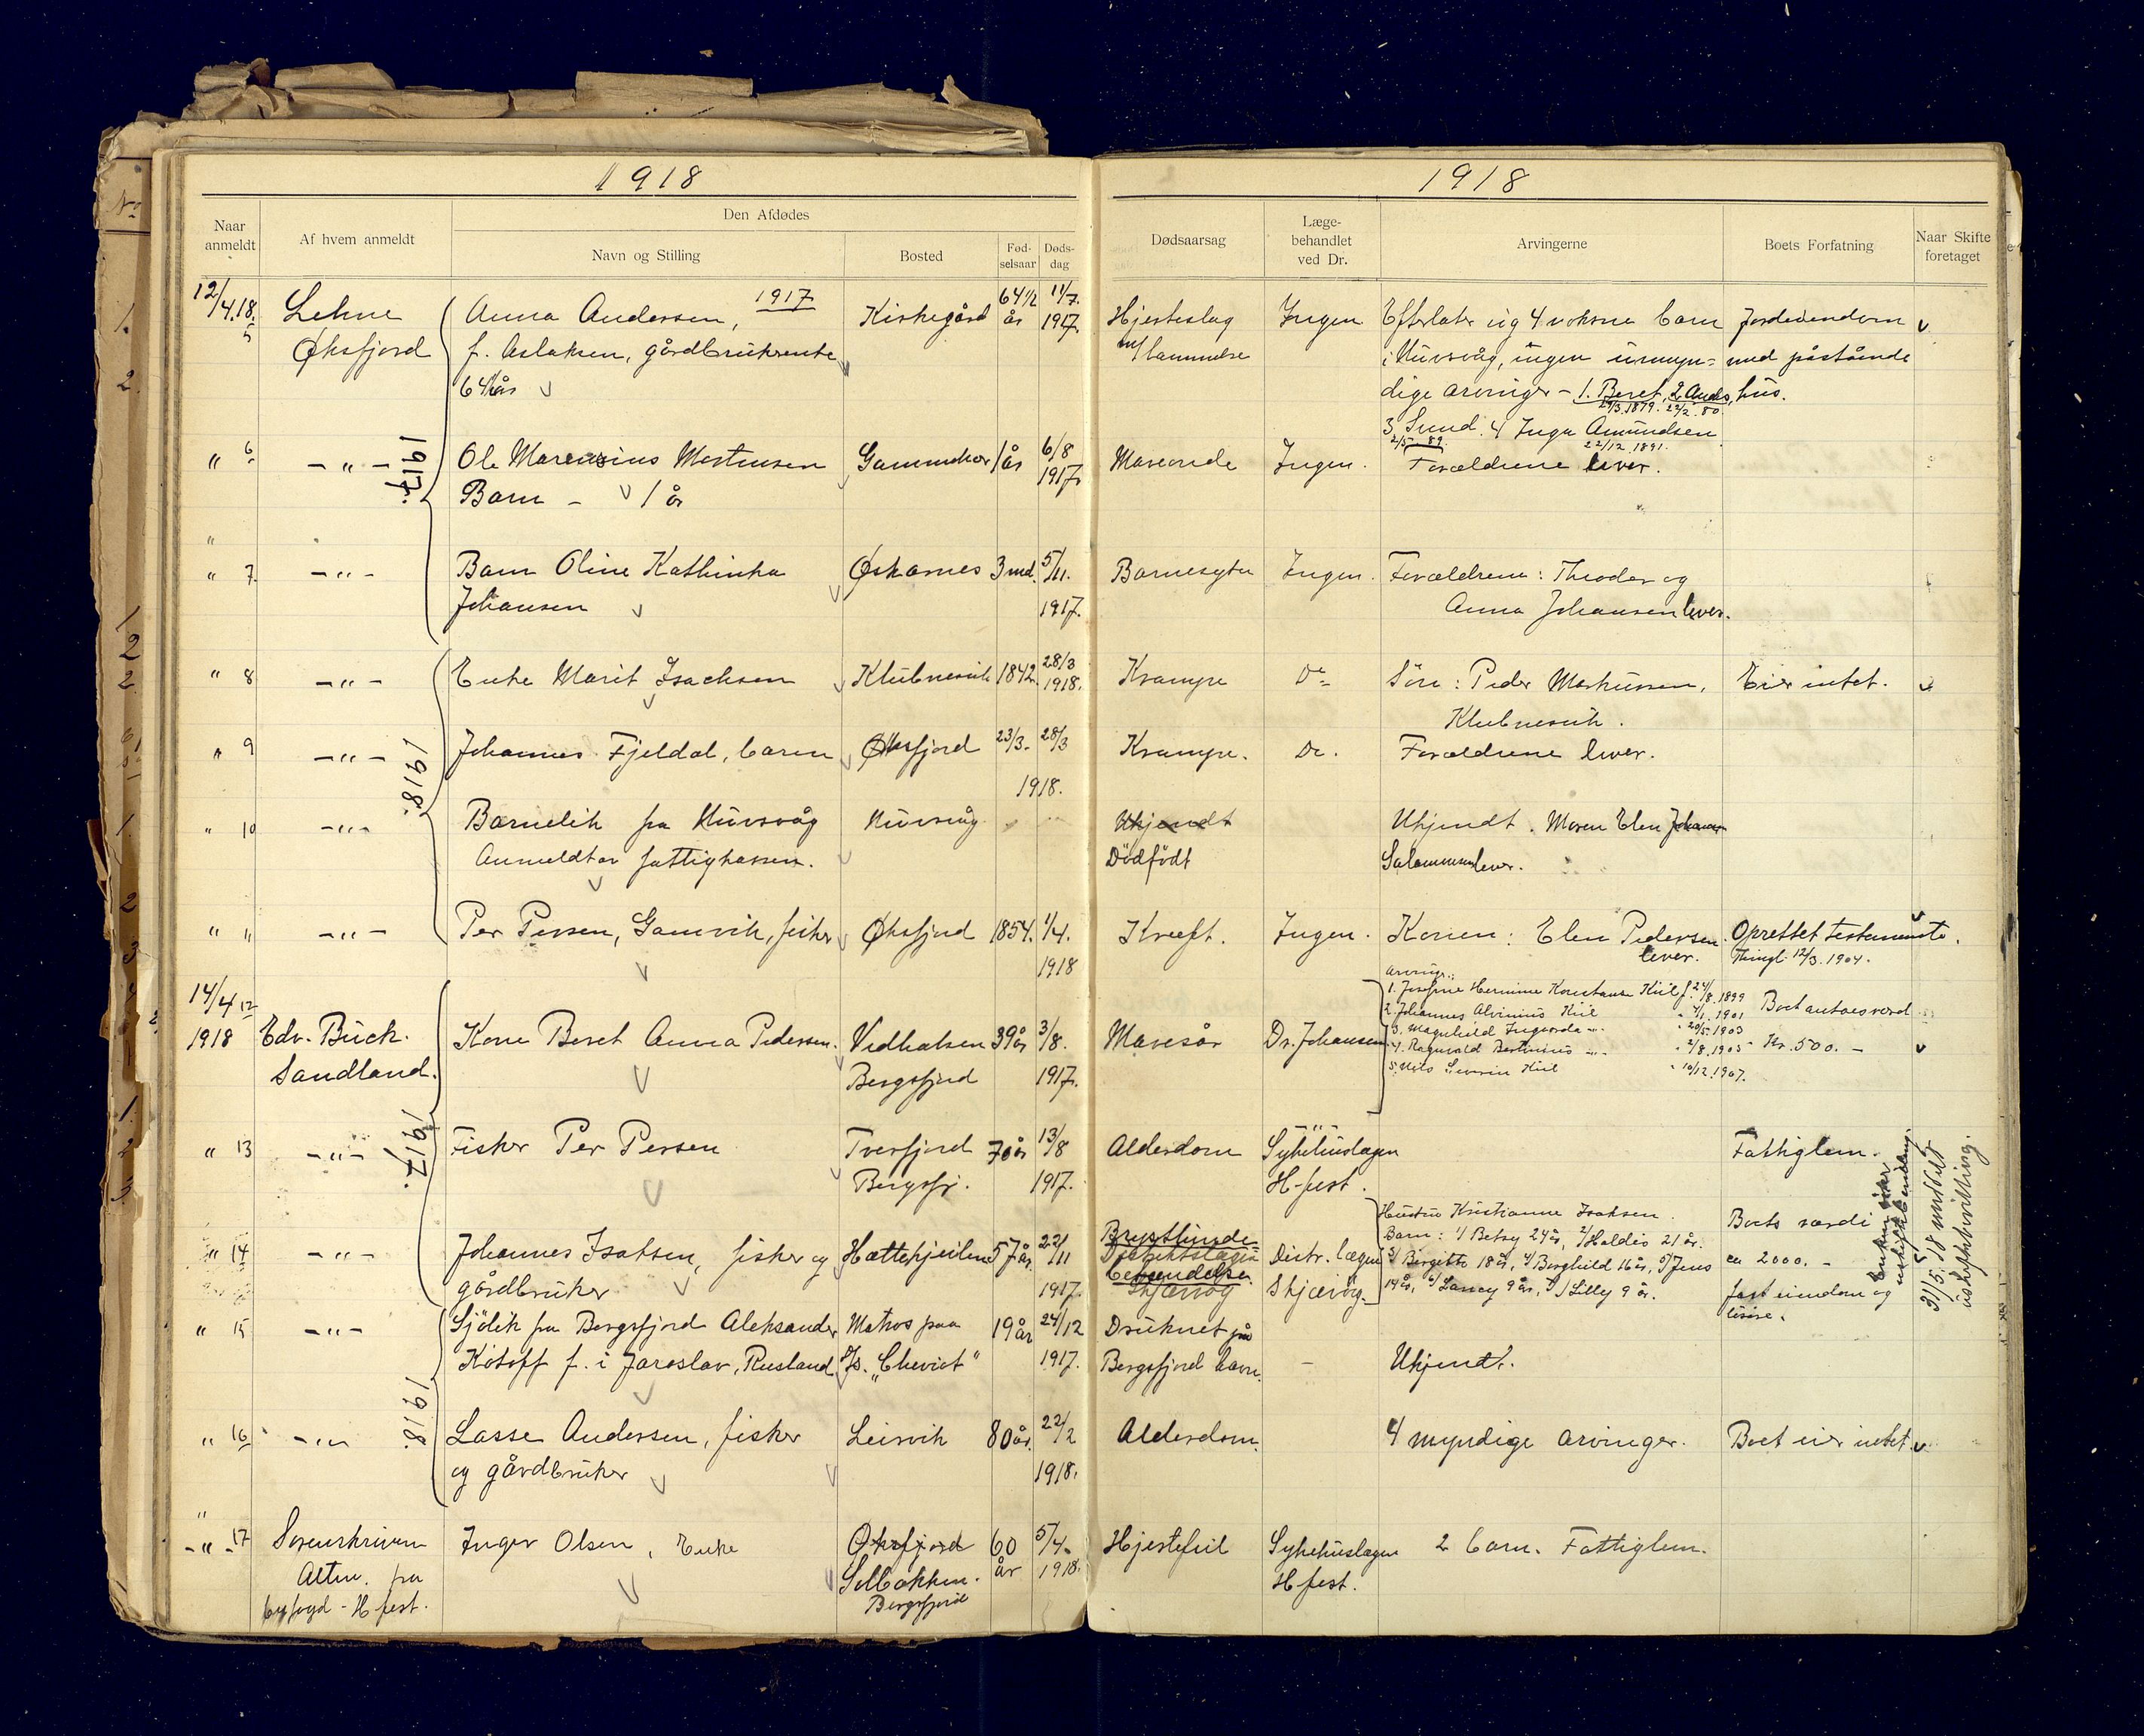 1918
1918
Naar anmeldt
Af hvem anmeldt
Den Afdødes
Navn og Stilling
Bosted
Fød-selsaar
Døds-dag
Dødsaarsag
Læge-behandlet ved Dr.
Arvingerne
Boets Forfatning
Naar Skifte foretaget
12/4.18. 5 Lehne Anna Andersen, 1917 Kirkegård 64 1/2 år 11/7. 1917. Hjerteslag Ingen Efterlater sig 4 voksne barn Jordeiendom v
Øksfjord f. Aslaksen, gårdbrukerenke m/lammelse i Nuvsvåg, ingen umyn= med påstående
64½ år dige arvinger – 1. Beret, 2 Anders, hus.
29/3.1879. 22/2.80.
3, Sund. 4 Inga Amundsen
2/5. 89. 22/12 1891.
" 6 – " – Ole Mortensen 1 år 6/8 1917. Ingen. Forældrene lever.
Barn – 1 år
1917.
" 7. – " – Barn Oline Kathinka Øksarnes 3 md. 5/11. Barnesyke Ingen. Forældrene: Theodor og
Johansen 1917. Anna Johansen lever.
" 8 – " – Enke Marit Isachsen Klubnesvik 1842. 28/3 1918. Krampe Do Sön: Peder Markussen, Eier intet. v
Klubnesvik.
" 9 – " – Johannes Fjeldal, barn Øksfjord 23/3– 28/3 Krampe. Do. Forældrene lever.
1918.
1918.
" 10 – " – Barnelik fra Nuvsvåg Nuvsvåg Ukjendt Ukjendt. Moren Elen Johans
Anmeldt av fattigkassen. Dödfödt Salamonsen lever.
" 11 – " – Per Persen, Gamvik, fisker Øksfjord 1854. 1/4. Kreeft. Ingen. Konen: Elen Pedersen Oprettet testamente.
1918 lever. Thingl. 12/3. 1904.
14/4 12 Arvinger:
1. Josefine Hermine Konstanse Kiil f. 24/8.1899
2. Johannes Alvinius Kiil " 4/1. 1901 Boet antaes værd
1918 Edv. Buck. Kone Beret Anna Pedersen. 39 år 3/8. Mavesår Dr. Johansen 3. Magnhild Ingvarda – " – " 20/5.1903
4. Ragnvald Bertinius – " – " 2/8.1905 Kr. 500. – v
Sandland. Bergsfjord 1917. 5. Nils Severin Kiil " 10/12.1907.
1917.
" 13 – " – Fisker Per Persen Tverfjord 70 år 13/8 Alderdom Sykehuslægen Fattiglem.
Bergsfj. 1917. H-fest.
Hustru Kristianne Isaksen.
Barn: 1/ Betsy 24 år, 2/ Haldis 21 år. Boets værdi
" 14 – " – Johannes Isaksen, fisker og 57 år. 22/11 Distr. lægen 3/ Bergitte 18 år, 4/ Borghild 16 år, 5/ Jens ca 2000. –
gårdbruker 1917. Skjærvöy Skjærvöy. 14 år, 6/ Laney 9 år, 7/ Lilly 9 år. fast eiendom og
lösöre.
31/5.18 meddelt
uskiftebevilling.
" 15 – " – Sjölik fra Bergsfjord Aleksander Matros paa 19 år 24/12 Druknet på
Kotoff f. i Jaroslav, Rusland S/S. "Cheviot" 1917. Bergsfjord havn. – Ukjendt.
1918.
" 16 – " – Lasse Andersen, fisker Leirvik 80 år. 22/2 Alderdom. 4 myndige arvinger. Boet eier intet. v
og gårdbruker 1918.
– " – 17 Sorenskriveren Inger Olsen, Enke Øksfjord 60 5/4. Hjertefeil Sykehuslægen 2 barn. Fattiglem.
Alten. fra Solbakken. år 1918. H-fest.
byfogd – H-fest. Bergsfjord